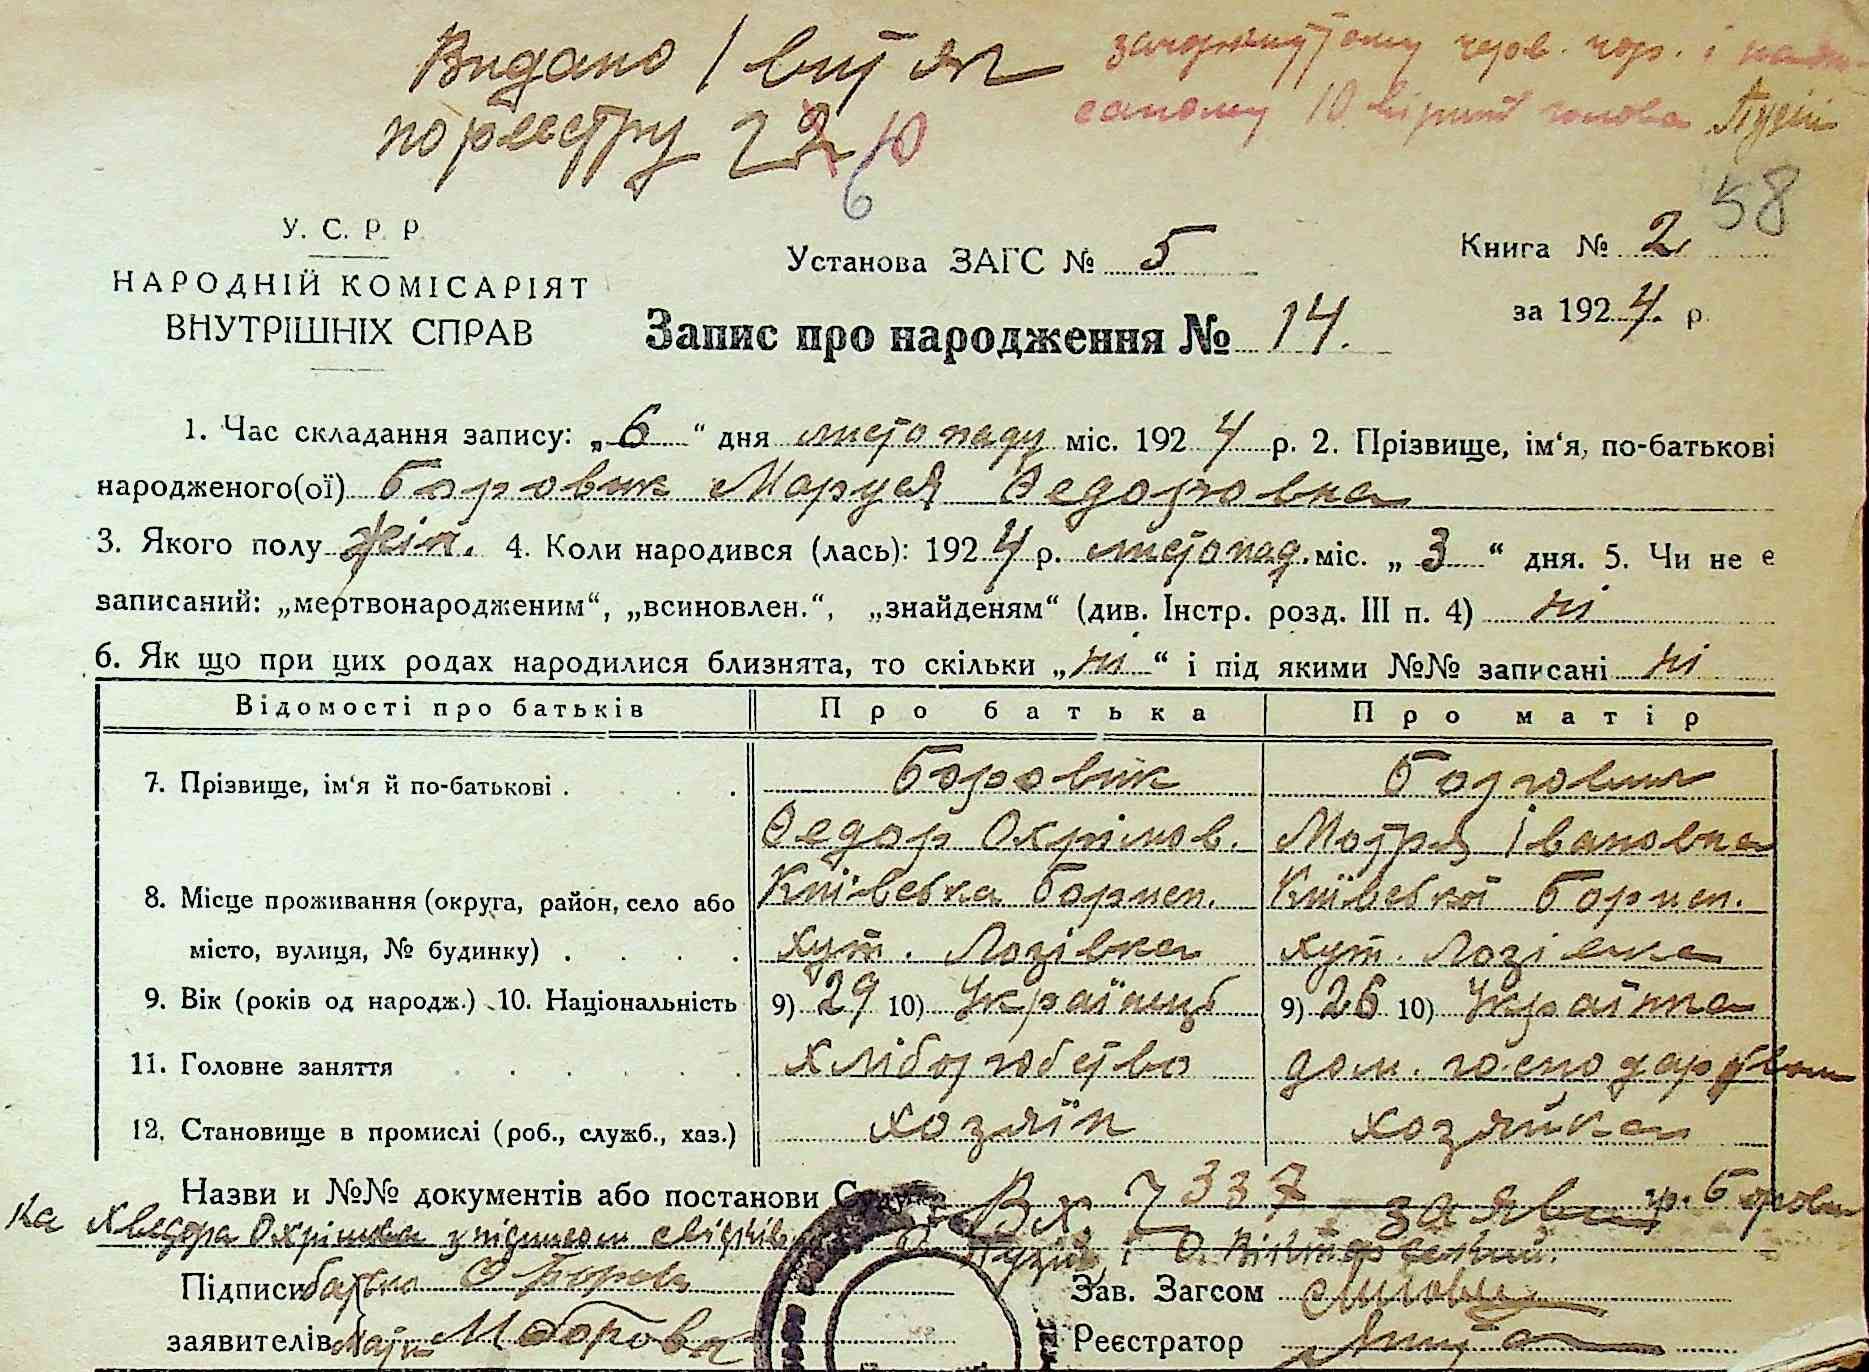 Видано 1 витяг
по реестру 22 10
6
закреслутому черв. чор. і напи-
саному 10 вірить голова Пузій
58
У. С. Р. Р.
НАРОДНІЙ КОМІСАРІЯТ
ВНУТРІШНІХ СПРАВ
Установа ЗАГС № 5
Книга № 2
за 1924 р.
Запис про народження № 14.
1. Час складання запису: „6“ дня листопаду міс. 1924 р. 2. Прізвище, ім‘я, по-батькові
народженого(ої) Боровик Маруся Федоровна
3. Якого полу жін. 4. Коли народився (лась): 1924 р. листопад. міс. „3“ дня. 5. Чи не є
записаний: „мертвонародженим“, „всиновлен.“, „знайденям“ (див. Інстр. розд. III п. 4) ні
6. Як що при цих родах народилися близнята, то скільки „ні“ і під якими №№ записані ні
Відомості про батьків Про батька Про матір
7. Прізвище, ім‘я й по-батькові Боровик Боровик
Федор Охрімов. Мотря Івановна
8. Місце проживання (округа, район, село або Київська Борисп. Київської Борисп.
місто, вулиця, № будинку) хут. Лозівка хут. Лозівка
9. Вік (років од народж.) 10. Національність 9) 29 10) Українець 9) 26 10) Українка
11. Головне заняття хліборобство дом. господарством
12. Становище в промислі (роб., служб., хаз.) хозяїн хозяйка
Назви и №№ документів або постанови Суду Вх. 7337 заява гр. Борови
ка Хведора Охрімова з підписом свідків Пузій і
Підписи батько Ф Боров
заявителів мати М Борова
Зав. Загсом
Реєстратор